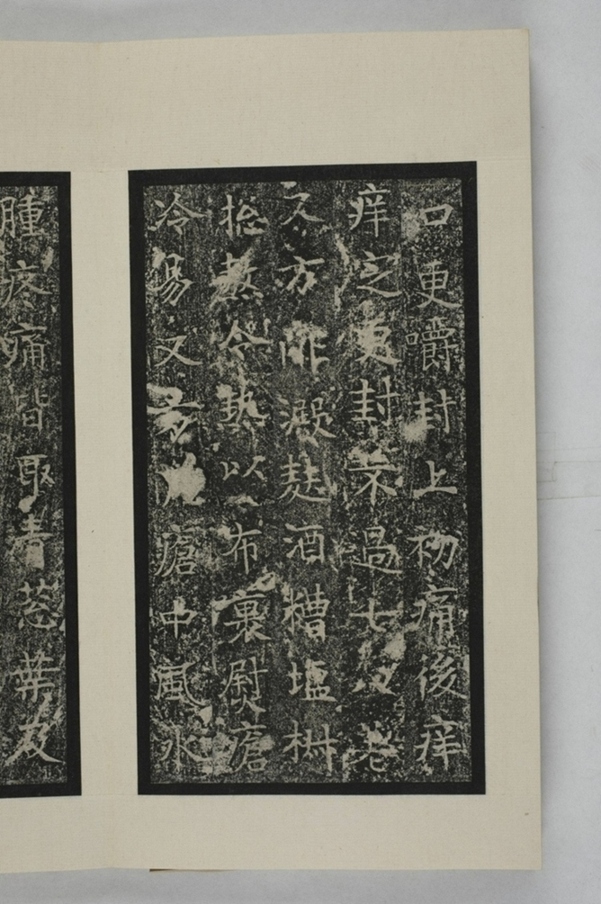 口更嚼封上初痛後痒
痒定更封不過七
又方酢澱麩酒糟塩椒
捴熬令熱以布裹熨瘡
冷易又方瘡中風水
腫疼痛皆取青葱葉及